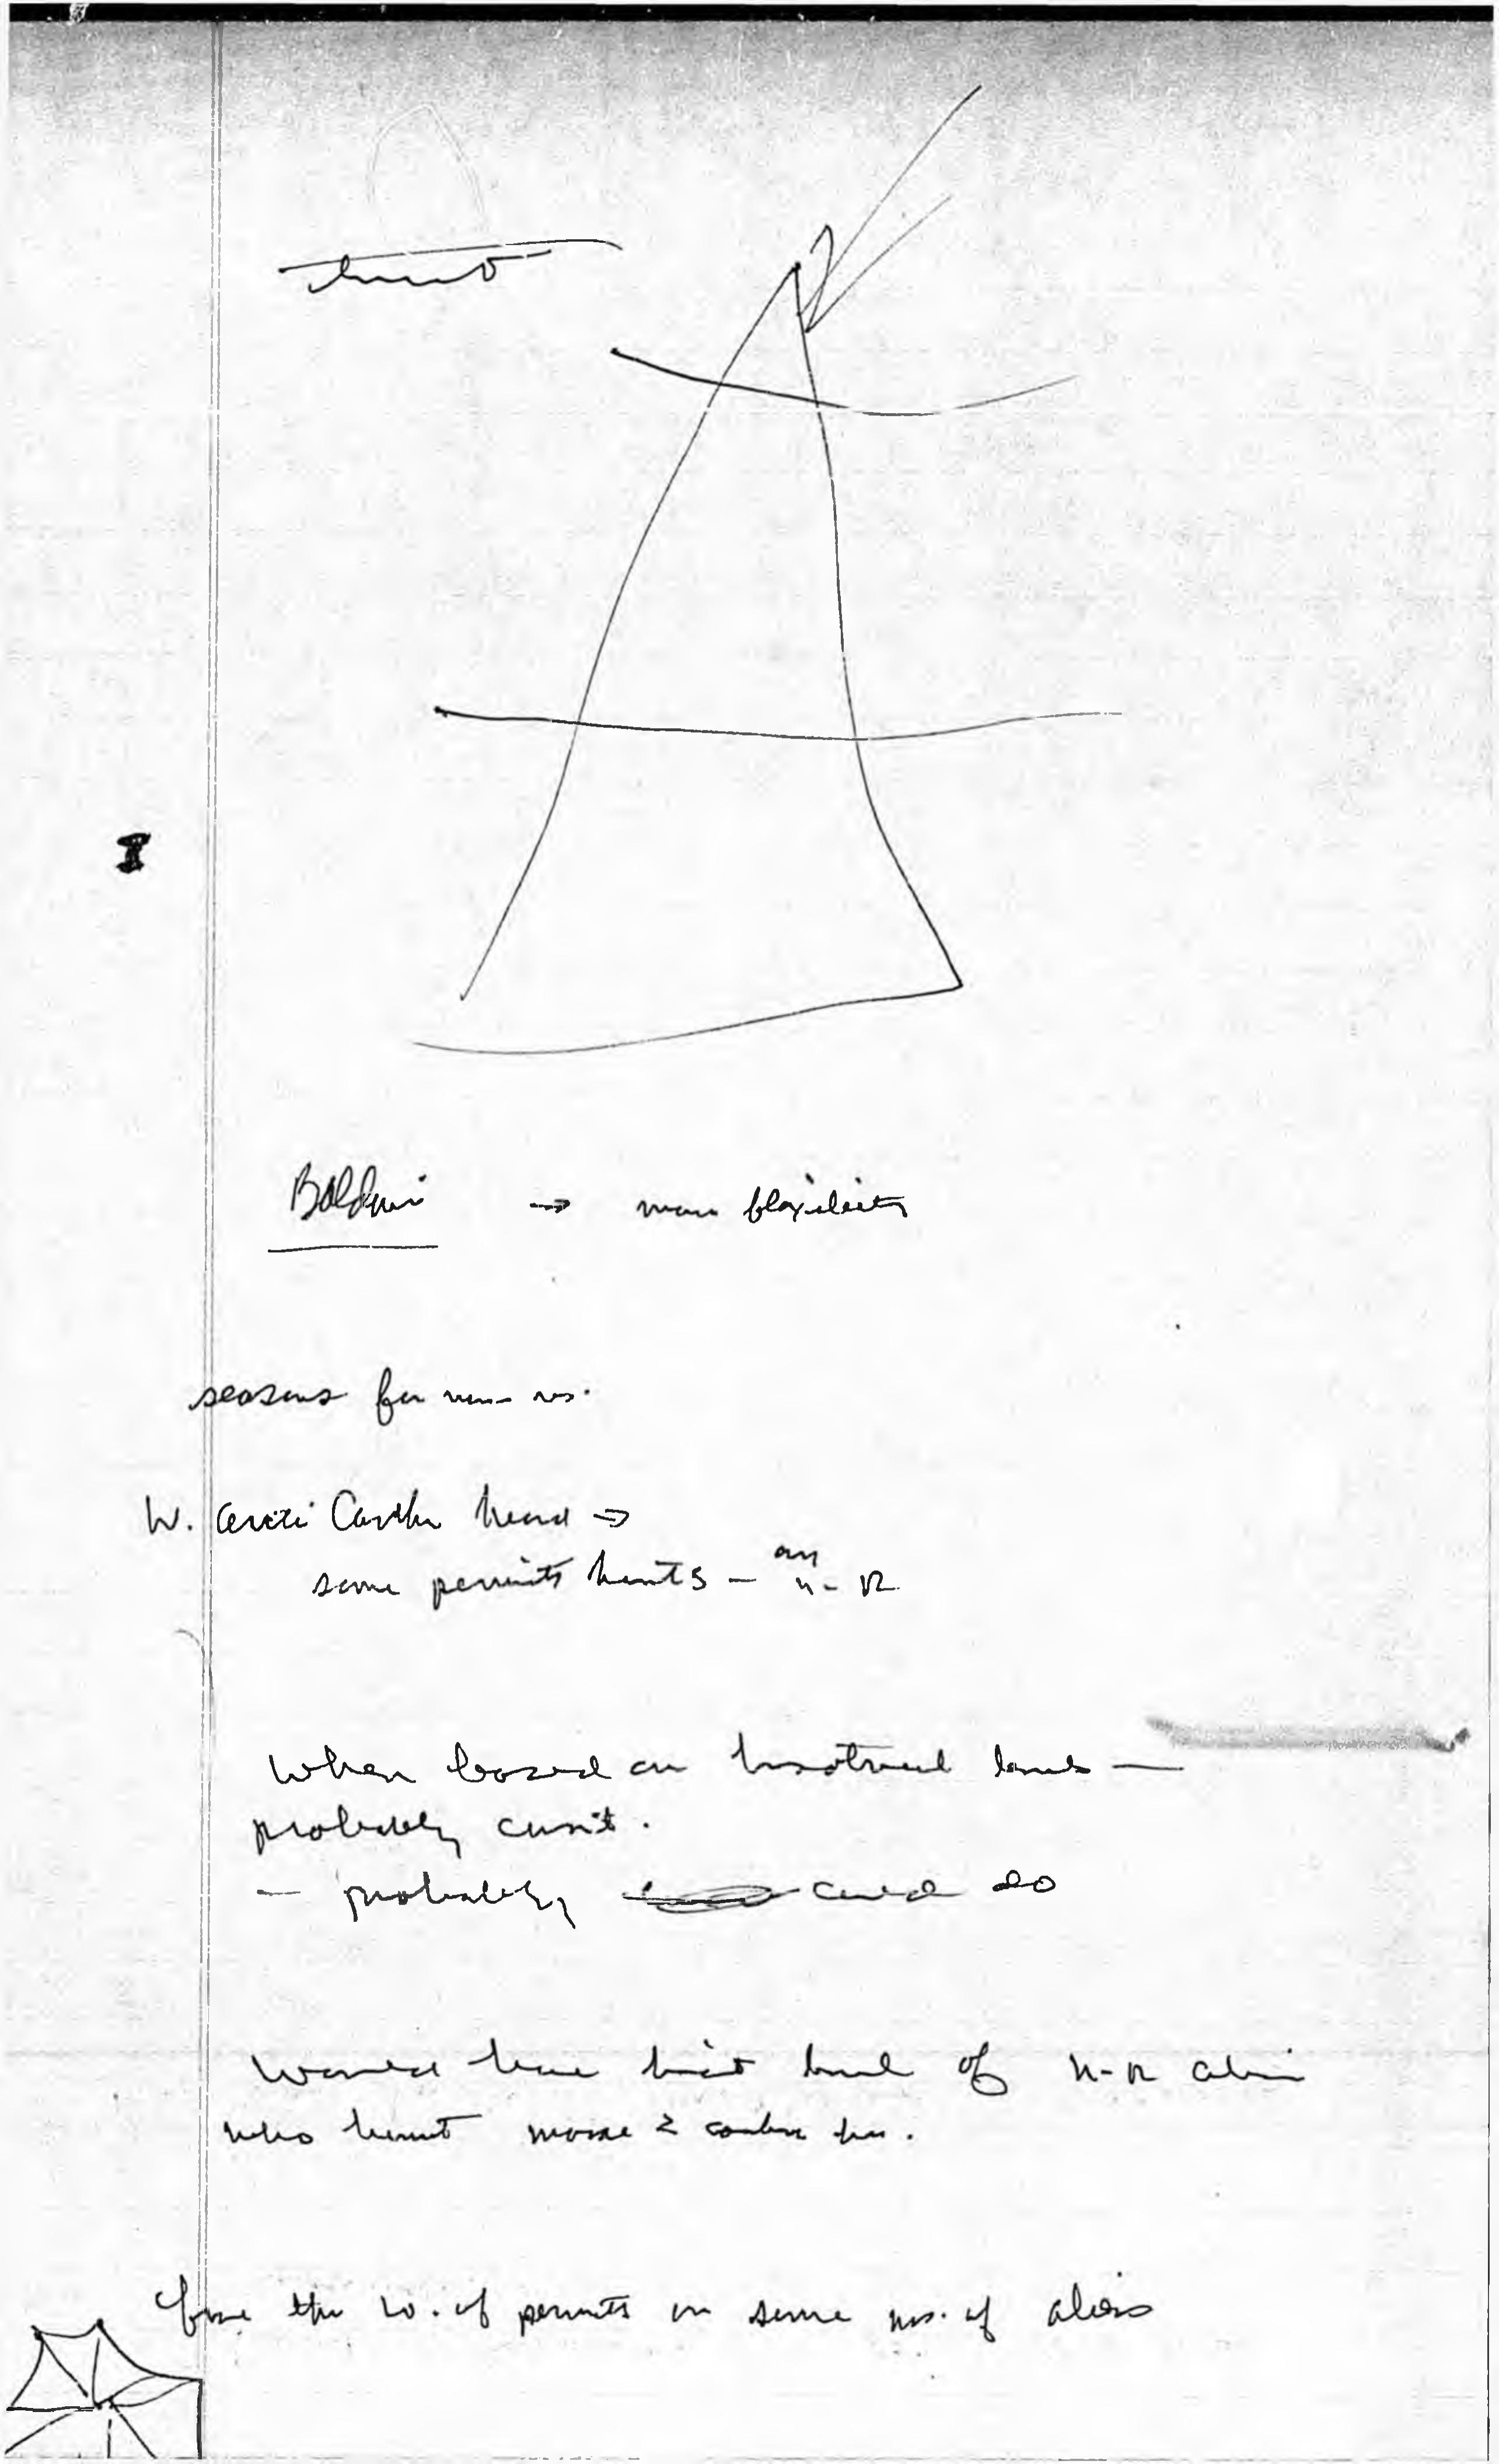 hunt
Baldwin → more flexibility
seasons for non-res.
W. Arctic Caribou herd →
some permits hunts - any
n-R
When based on historical
probably can't.
- probably could do
Would have hist of n-R alien
who hunt moose & caribou
the no. of permits on some no. of aliens